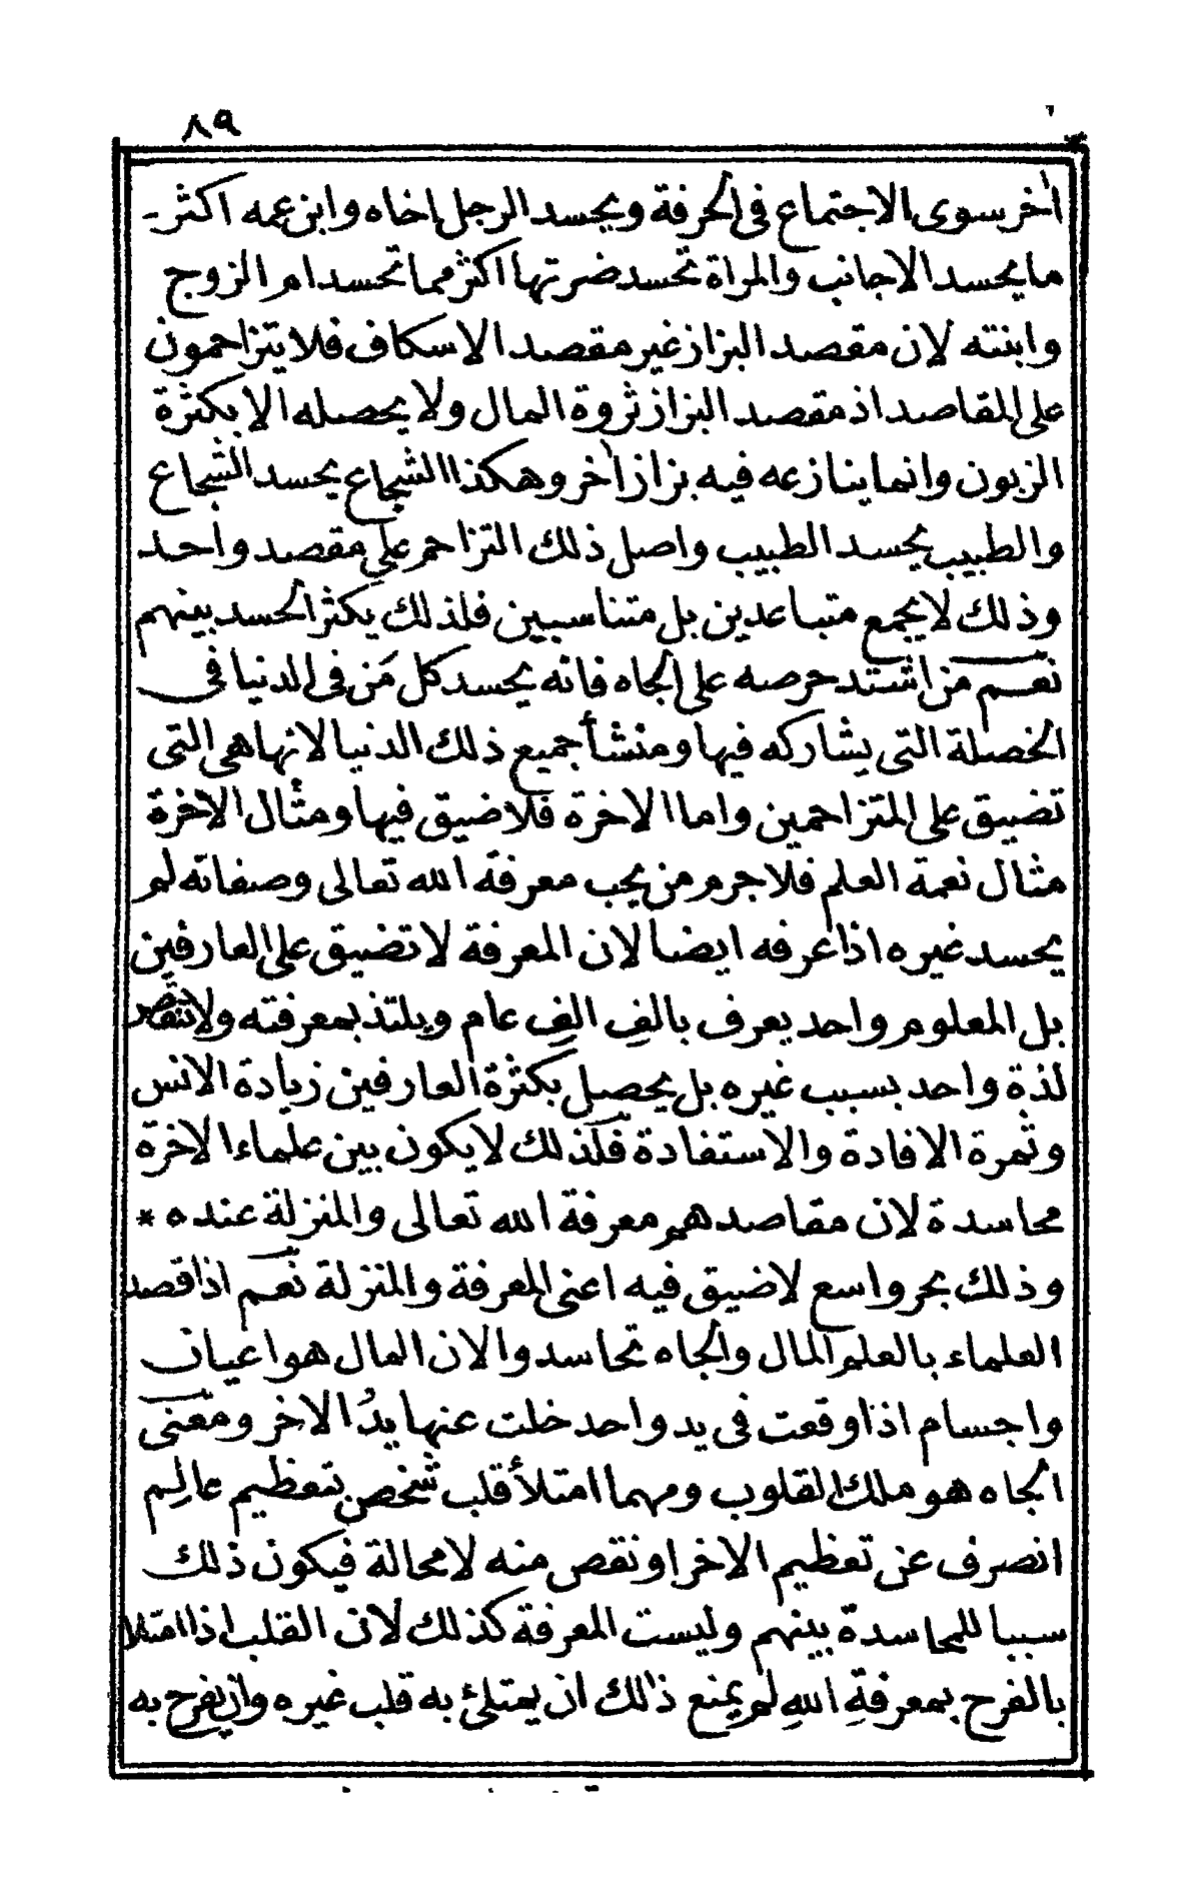 ٨٩
اٰخر سوى الاجتماع فى الحرفة ويحسد الرجل اخاه وابن عمه اكثر
ما يحسد الاجانب والمراة تحسد ضرتها اكثر مما تحسد ام الزوج
وابنته لان مقصد البزاز غير مقصد الاسكاف فلا يتزاحمون
على المقاصد اذ مقصد البزاز ثروة المال ولا يحصله الا بكثرة
الزبون وانما ينازعه فيه بزاز اٰخر وهكذا الشجاع يحسد الشجاع
والطبيب يحسد الطبيب واصل ذلك التزاحم على مقصد واحد
وذلك لا يجمع متباعدين بل متناسبين فلذلك يكثر الحسد بينهم
نعم من اشتد حرصه على الجاه فانه يحسد كل مَن فى الدنيا فى
الخصلة التى يشاركه فيها ومنشأ جميع ذلك الدنيا لانها هى التى
تضيق على المتزاحمين واما الاخرة فلا ضيق فيها ومثال الاخرة
مثال نعمة العلم فلا جرم من يحب معرفة الله تعالى وصفاته لم
يحسد غيره اذا عرفه ايضا لان المعرفة لا تضيق على العارفين
بل المعلوم واحد يعرف بالف الف عام ويلتذ بمعرفته ولا تنقص
لذة واحد بسبب غيره بل يحصل بكثرة العارفين زيادة الانس
وثمرة الافادة والاستفادة فلذلك لا يكون بين علماء الاخرة
محاسدة لان مقاصدهم معرفة الله تعالى والمنزلة عنده *
وذلك بحر واسع لا ضيق فيه اعنى المعرفة والمنزلة نعم اذا قصد
العلماء بالعلم المال والجاه تحاسدوا لان المال هو اعيان
واجسام اذا وقعت فى يد واحد خلت عنها يدُ الاخر ومعنى
الجاه هو ملك القلوب ومهما امتلأ قلب شخص بتعظيم عالِم
انصرف عن تعظيم الاخر او نقص منه لا محالة فيكون ذلك
سببا للمحاسدة بينهم وليست المعرفة كذلك لان القلب اذا امتلا
بالفرح بمعرفةِ اللهِ لم يمنع ذلك ان يمتلئ به قلب غيره وان يفرح به